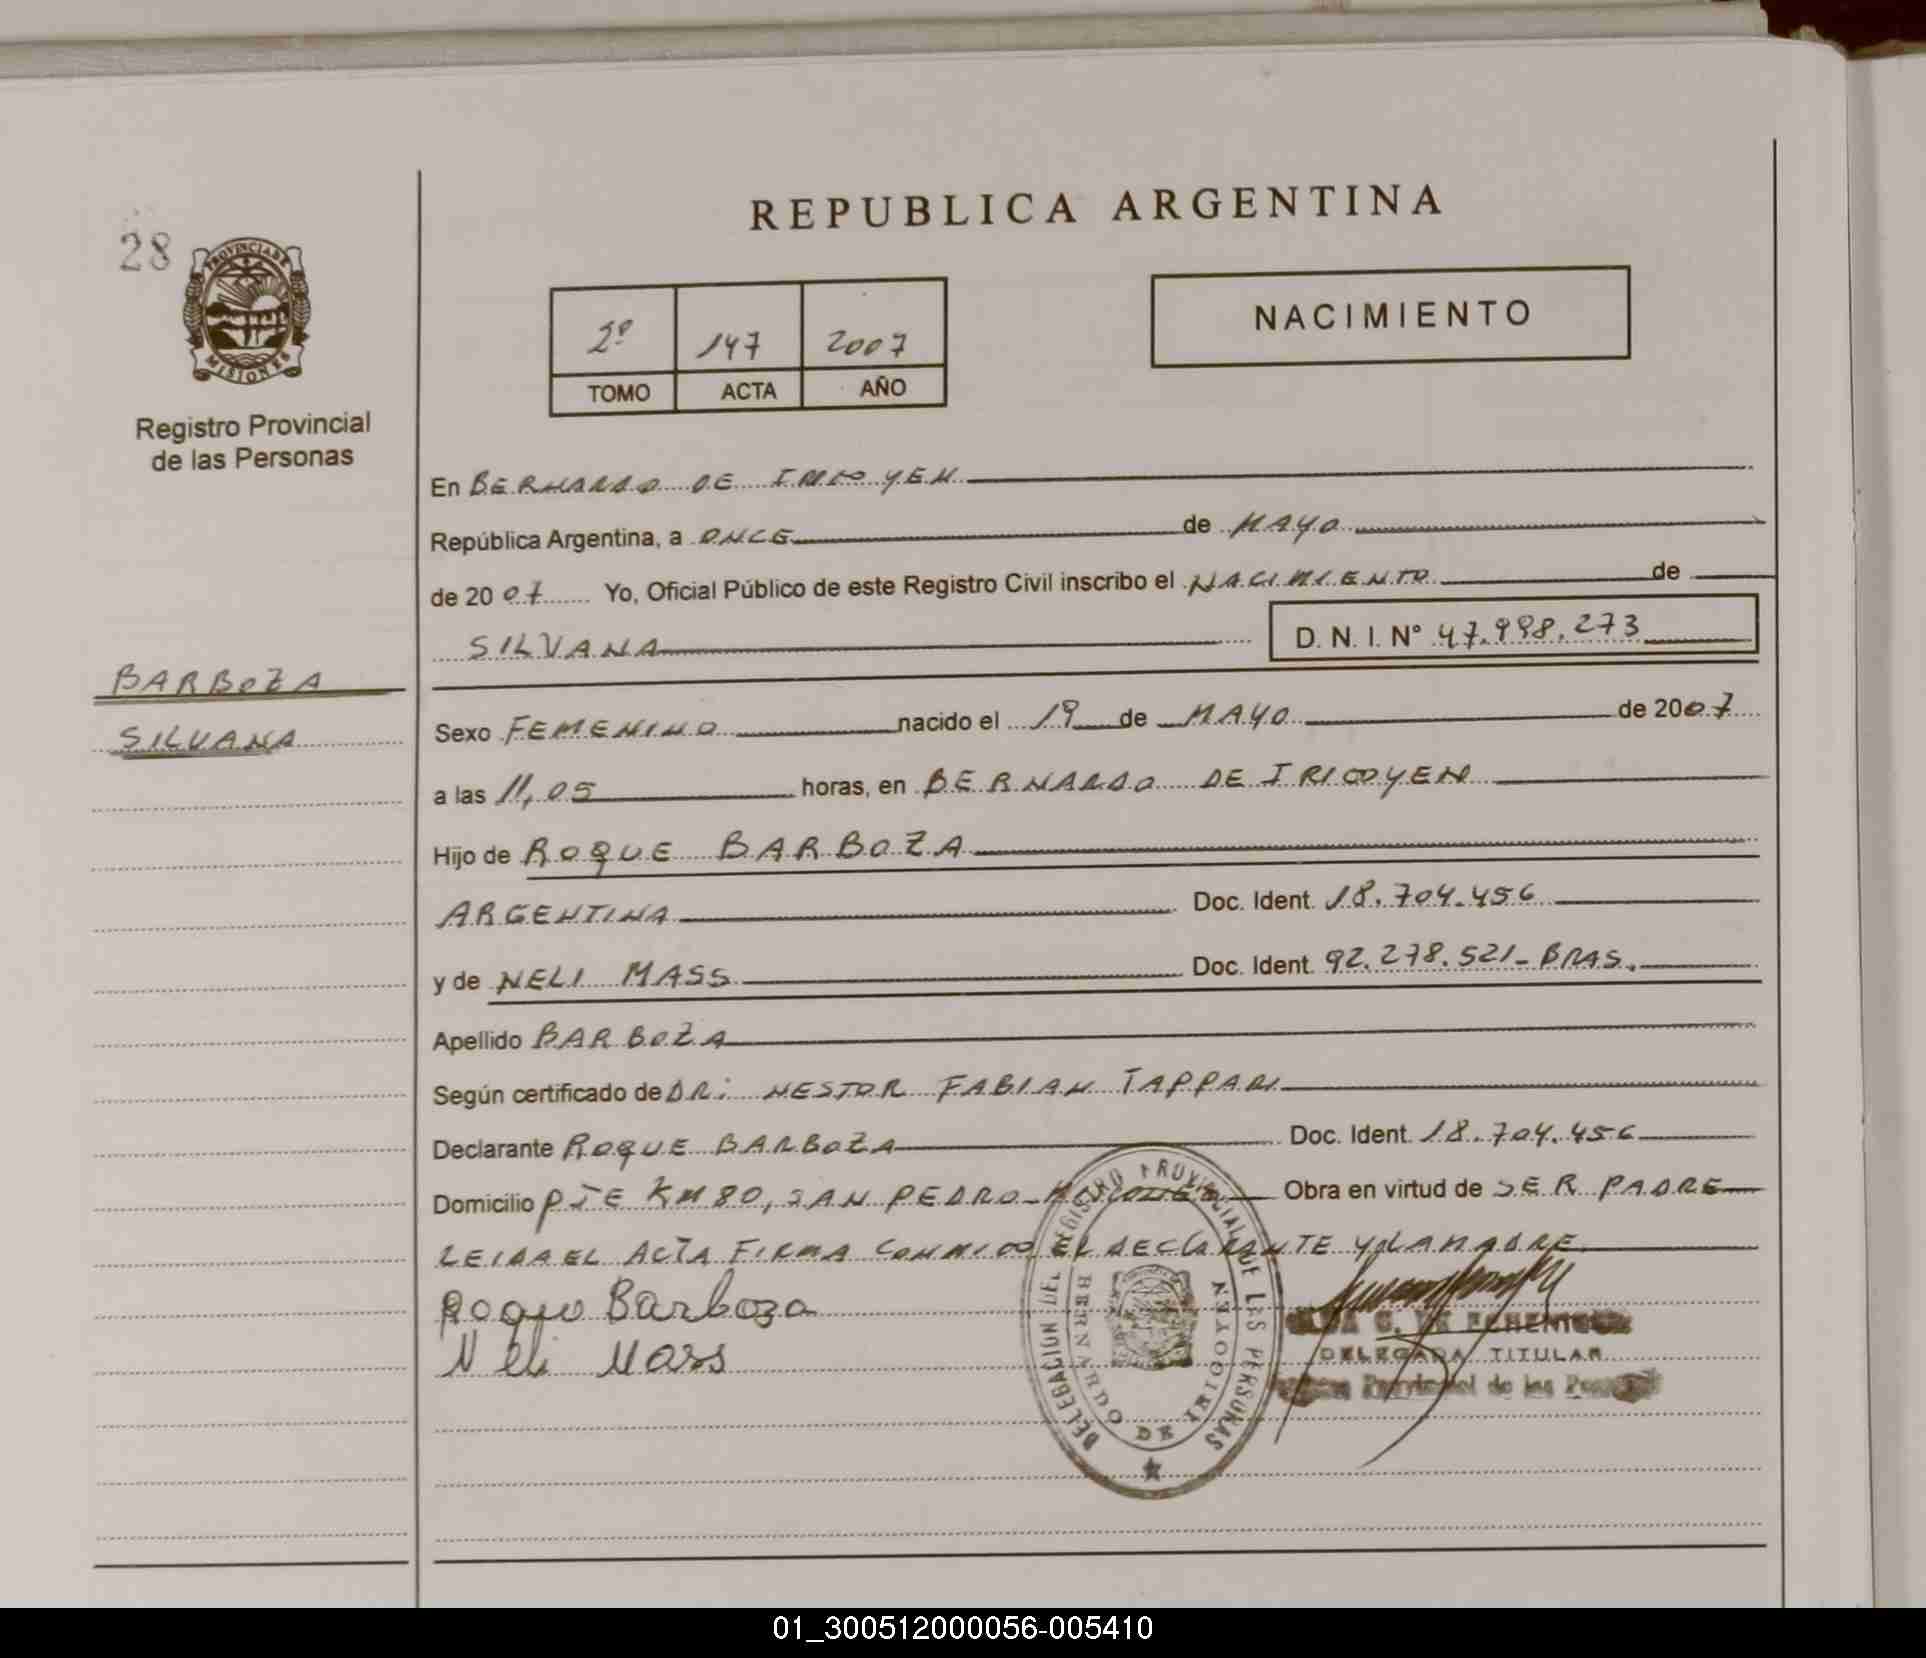 REPUBLICA ARGENTINA
28
PROVINCIA DE
MISIONES
Registro Provincial
de las Personas
2º 147 2007
TOMO ACTA AÑO
NACIMIENTO
En BERNARDO DE IRIGOYEN
República Argentina, a ONCE de MAYO
de 2007 Yo, Oficial Público de este Registro Civil inscribo el NACIMIENTO de
SILVANA
D. N. I. N° 47.998.273
BARBOZA
SILVANA
Sexo FEMENINO nacido el 19 de MAYO de 2007
a las 11,05 horas, en BERNARDO DE IRIGOYEN
Hijo de ROQUE BARBOZA
ARGENTINA Doc. Ident. 18.704.456
y de NELI MASS Doc. Ident. 92.278.521- BRAS.
Apellido BARBOZA
Según certificado de DR: NESTOR FABIAN TAPPARI
Declarante ROQUE BARBOZA Doc. Ident. 18.704.456
Domicilio PJE KM 80, SAN PEDRO- MISIONES Obra en virtud de SER PADRE
LEIDA EL ACTA FIRMA CONMIGO EL DECLARANTE Y LA MADRE
Roque Barboza
Neli Mass
DELEGACION DEL REGISTRO PROVINCIAL DE LAS PERSONAS
BERNARDO DE IRIGOYEN
C. DE ECHENIQUE
DELEGADA TITULAR
Provincial de las
01_300512000056-005410